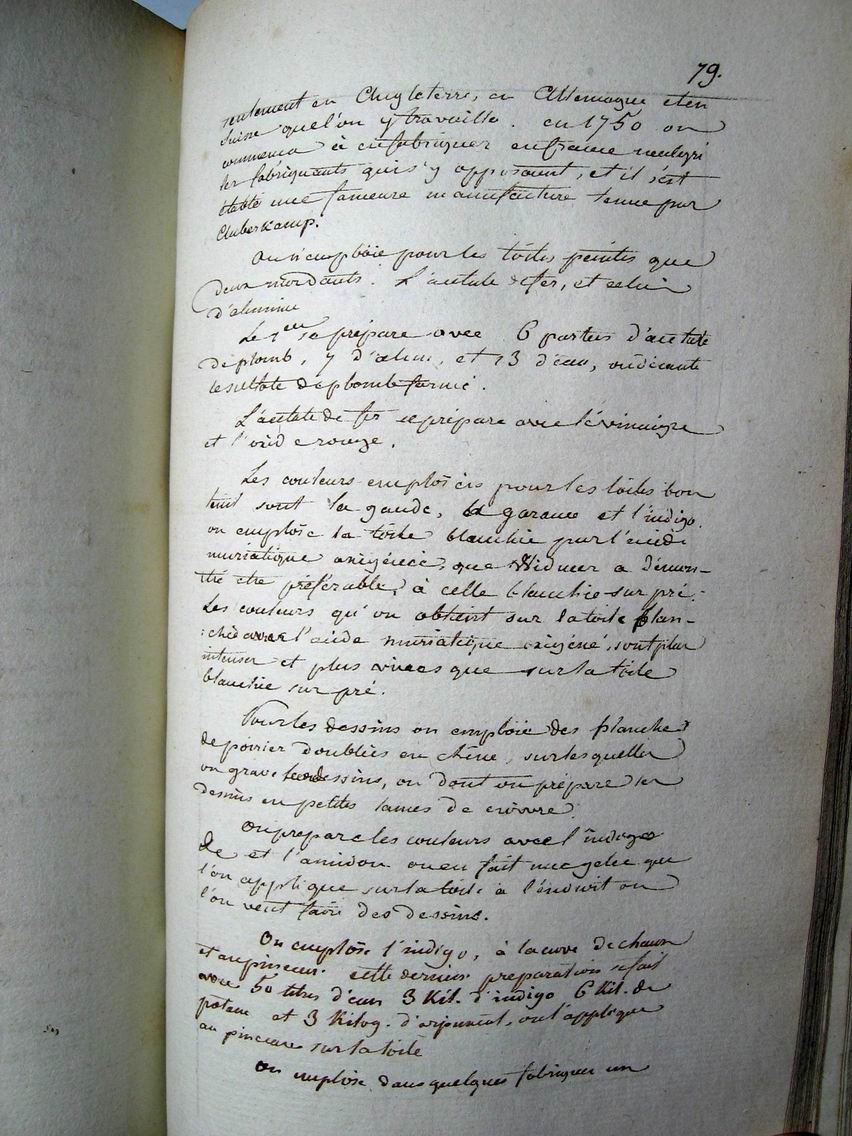 79.
seulement en Angleterre, en Allemagne et en
Suisse que l'on y travailla. en 1750 on
commença à en fabriquer en france malgré
les fabriquants qui s'y opposaient, et il s'est
établi une fameuse manufacture tenue par
Auberkamp.
On n'emploie pour les toiles peintes que
deux mordants. L'acétate de fer, et celui
d'alumine
Le 1er se prépare avec 6 parties d'acétate
de plomb, 7 d'alun, et 13 d'eau, on décante
le sulfate de plomb formé.
L'acétate de fer se prépare avec le vinaigre
et l'oxide rouge.
Les couleurs emploiées pour les toiles bon
teint sont la gaude, la garance et l'indigo.
on emploïe la toile blanchie par l'acide
muriatique oxigéné, que Widmer a démon-
tré être préférable, à celle blanchie sur pré.
Les couleurs qu'on obtient sur la toile blan-
:chie avec l'acide muriatique oxigéné, sont plus
intenses et plus vives que sur la toile
blanchie sur pré.
Pour les dessins on emploie des planches
de poirier doublées en chêne, sur les quelles
on grave les dessins, ou dont on prépare les
dessins en petites lames de cuivre.
On prepare les couleurs avec l'indigo
et l'amidon on en fait une gelée que
l'on applique sur la toile à l'endroit où
l'on veut faire des dessins.
On emploïe l'indigo, à la cuve de chaux
et au pinceau. cette dernière preparation se fait
avec 50 litres d'eau 3 Kil. d'indigo 6 Kil. de
potasse et 3 Kilog. d'orpiment, on l'applique
au pinceau sur la toile
On emploïe dans quelques fabriques un